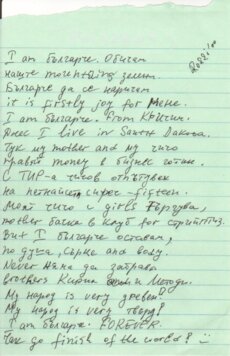 I am българче. Обичам
наште mountains зелени.
Българче да се наричам
it is firstly joy for мене.
I am българче. From Кричим.
Днес I live in South Dakota.
Тук my mother and my чичо
правят money в бизнес готин.
С ТИР-а чичов отпътувам
на петнайсе - fifteen.
Моят чичо с girls търгува,
mother бачка в клуб for стрийптиз.
But I българче оставам,
по душа, сърце and body.
Never няма да забравя
brothers Кирил и Методи.
My народ is very древен!
My народ is very твърд!
I am българче. FOREVER.
Так до finish of the world!